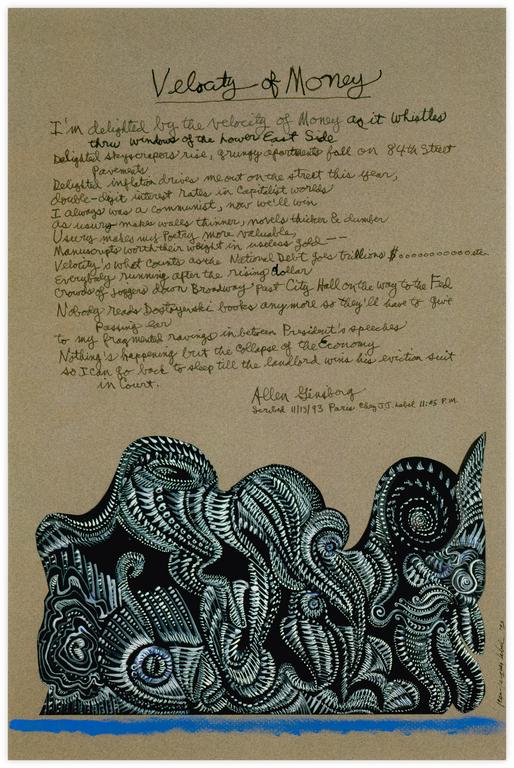 Velocity of Money
I'm delighted by the velocity of Money as it whistles
thru windows of the Lower East Side
Delighted skyscrapers rise, grungy apartments fall on 84th Street
Pavements
Delighted inflation drives me out on the street this year,
double-digit interest rates in Capitalist worlds
I always was a communist, now we'll win
as usury makes walls thinner, novels thicker & dumber
Usury makes my Poetry more valuable,
Manuscripts worth their weight in useless gold ——
Velocity's what Counts as the National Debt goes trillions $ooooooooooooo etc
Everybody running after the rising dollar
Crowds of joggers down Broadway past City Hall on the way to the Fed
Nobody reads Dostoyevski books anymore so they'll have to give
Passing ear
to my fragmented ravings in between President's speeches
Nothing's happening but the Collapse of the Economy
so I can go back to sleep till the landlord wins his eviction suit
in Court.
Allen Ginsberg
Scribed 11/13/93 Paris Chez J.J. Lebel 11:45 P.M.